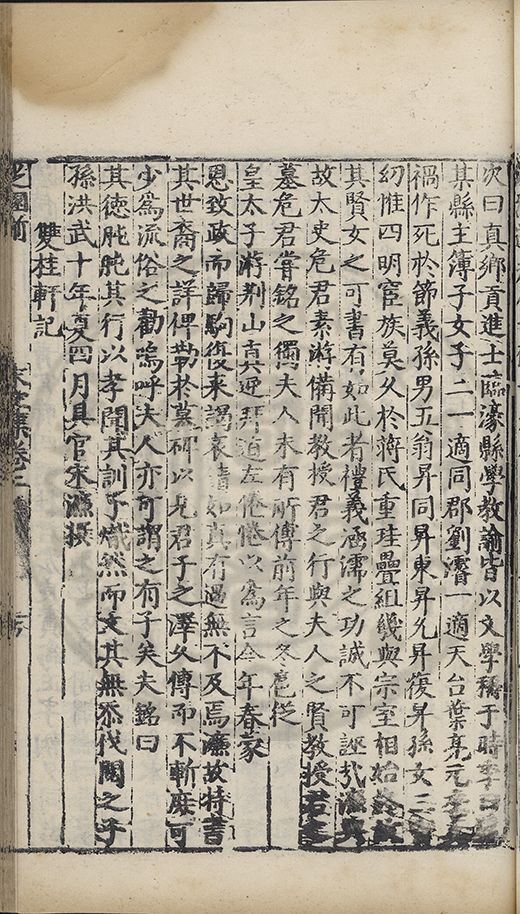 次曰真鄉貢進士臨濠縣學教諭皆以文學稱于時季曰
某縣主簿子女子二一適同郡劉濬一適天台葉亮元
禍作死於節義孫男五翁昇同昇東昇允昇復昇孫女二
幼惟四明宦族莫久於蔣氏重珪疊組幾與宗室相始終
其賢女之可書有如此者禮義涵濡之功誠不可誣哉濂與
故太史危君素游備聞教授君之行與夫人之賢教授君
墓危君嘗銘之獨夫人未有所傳前年之冬扈從
皇太子游荆山真迎拜道左倦倦以為言今年春蒙
恩致政而歸駒復來謁哀請如真有遇無不及焉濂故特書
其世裔之詳俾勒於墓碑以見君子之澤久傳而不斬庶可
少為流俗之勸嗚呼夫人亦可謂之有子矣夫銘曰
其德肫肫其行以孝聞其訓子熾然而文其無忝伐閱之子
孫洪武十年夏四月具官宋濂撰
雙桂軒記
宋學集卷三